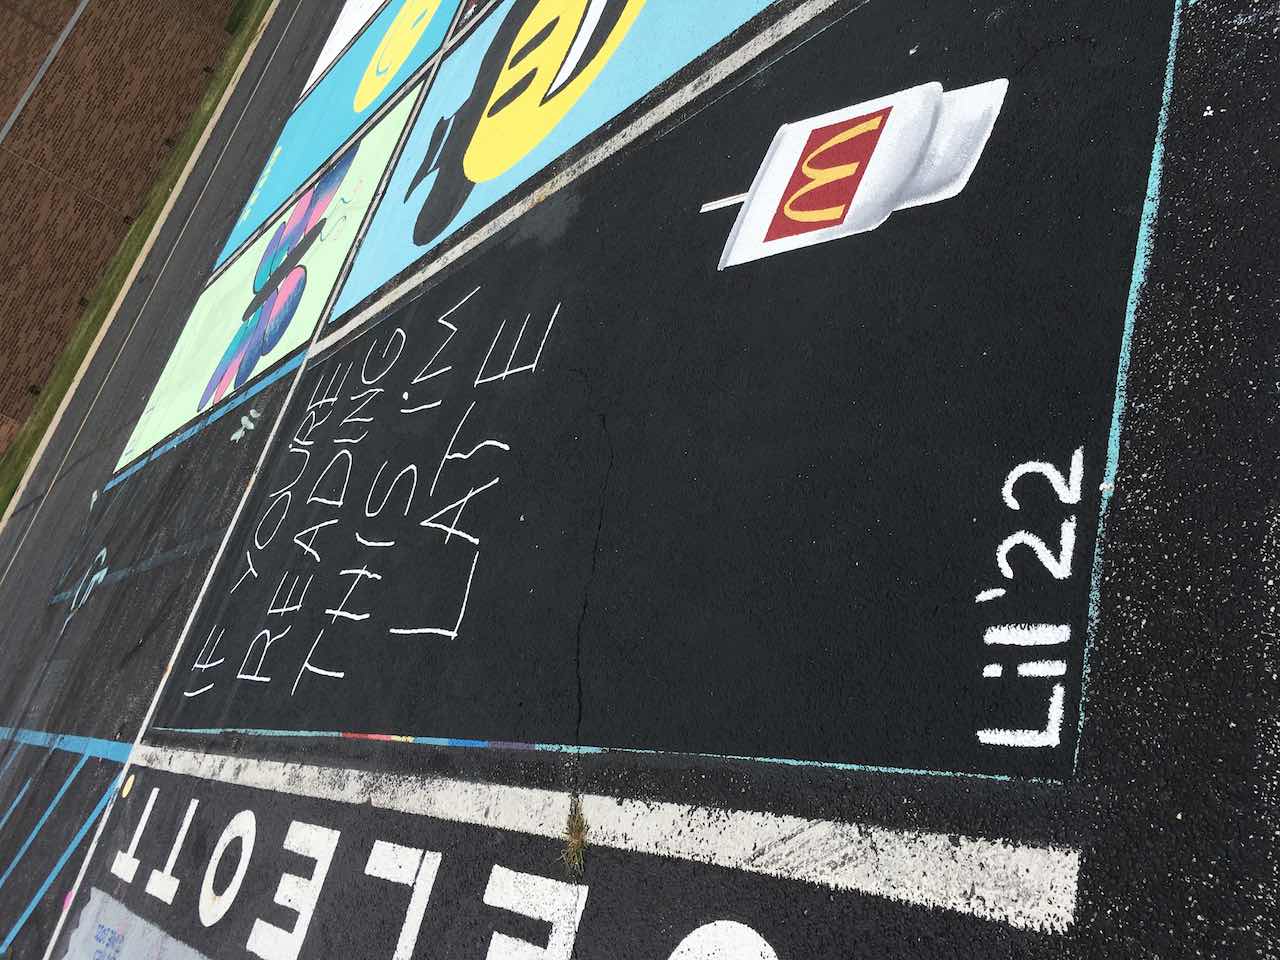 IF
YOU'RE
READING
THIS I'M
LATE
M
Lil '22
ELEOTT